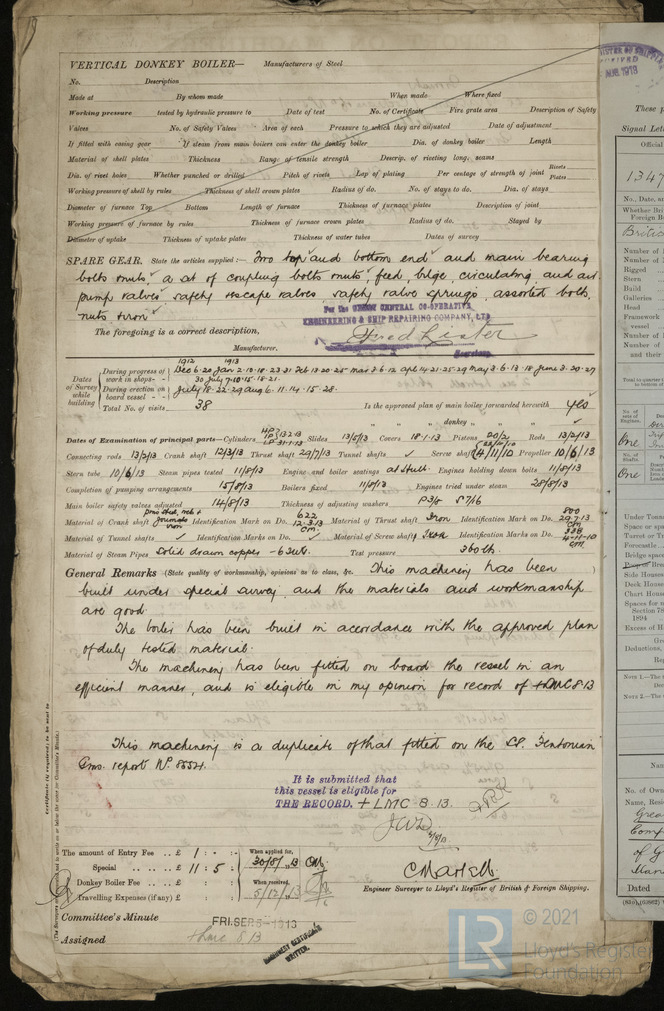 VERTICAL DONKEY BOILER— Manufacturers of Steel
No. Description
Made at By whom made When made Where fixed
Working pressure tested by hydraulic pressure to Date of test No. of Certificate Fire grate area Description of Safety
Valves No. of Safety Valves Area of each Pressure to which they are adjusted Date of adjustment
If fitted with easing gear If steam from main boilers can enter the donkey boiler Dia. of donkey boiler Length
Material of shell plates Thickness Range of tensile strength Descrip. of riveting long. seams
Dia. of rivet holes Whether punched or drilled Pitch of rivets Lap of plating Per centage of strength of joint Rivets Plates
Working pressure of shell by rules Thickness of shell crown plates Radius of do. No. of stays to do. Dia. of stays
Diameter of furnace Top Bottom Length of furnace Thickness of furnace plates Description of joint
Working pressure of furnace by rules Thickness of furnace crown plates Radius of do. Stayed by
Diameter of uptake Thickness of uptake plates Thickness of water tubes Dates of survey
SPARE GEAR. State the articles supplied:— Two top and bottom end and main bearing
bolts & nuts, a set of coupling bolts & nuts, feed, bilge, circulating and air
pump valves, safety & escape valves, safety valve springs, assorted bolts,
nuts & iron
The foregoing is a correct description,
For the UNION CENTRAL CO-OPERATIVE
ENGINEERING & SHIP REPAIRING COMPANY, LTD
Fred Lister
Manufacturer. Secretary.
Dates of Survey while building
During progress of work in shops - - 1912 Dec 6. 20 1913 Jan 2. 10. 18. 23. 31 Feb 13. 20. 25 Mar 3. 6. 12 Apl 14. 21. 25. 29 May 3. 6. 13. 18 June 3. 20. 27
30 July 7. 10. 15. 18. 21.
During erection on board vessel - - July 18. 22. 29 Aug 6. 11. 14. 15. 28.
Total No. of visits 38 Is the approved plan of main boiler forwarded herewith yes
" " " donkey " " "
Dates of Examination of principal parts—Cylinders HP 13.2.13 LP 31.1.13 Slides 13/5/13 Covers 18.1.13 Pistons 20/2 Rods 13/2/13
Connecting rods 13/2/13 Crank shaft 12/3/13 Thrust shaft 29/7/13 Tunnel shafts ✓ Screw shaft 4/11/10 Propeller 10/6/13
Stern tube 10/6/13 Steam pipes tested 11/8/13 Engine and boiler seatings at Hull. Engines holding down bolts 11/8/13
Completion of pumping arrangements 15/8/13 Boilers fixed 11/8/13 Engines tried under steam 28/8/13
Main boiler safety valves adjusted 14/8/13 Thickness of adjusting washers P 3/8 S 7/16
Material of Crank shaft Identification Mark on Do. 622 12.3.13 CM. Material of Thrust shaft Iron Identification Mark on Do. 800 29.7.13 CM
Material of Tunnel shafts ✓ Identification Marks on Do. ✓ Material of Screw shafts Iron Identification Marks on Do. 538 4-11-10 CM.
Material of Steam Pipes Solid drawn copper - 6 Test pressure 360 lb.
General Remarks (State quality of workmanship, opinions as to class, &c. This machinery has been
built under special survey, and the materials and workmanship
are good
The boiler has been built in accordance with the approved plan
of duly tested material.
The machinery has been fitted on board the vessel in an
efficient manner, and is eligible in my opinion for record of + LMC 8.13
This machinery is a duplicate of that fitted on the Fentonian
Gms. report No. 85521.
It is submitted that
this vessel is eligible for
THE RECORD. + LMC 8. 13.
The amount of Entry Fee .. £ 1 : - :
Special .. .. £ 11 : 5 :
Donkey Boiler Fee .. .. £ : :
Travelling Expenses (if any) £ : :
When applied for, 30/8/13
When received, 5/12/13
Engineer Surveyor to Lloyd's Register of British & Foreign Shipping.
Committee's Minute FRI. SEP 5-1913
Assigned + LMC 8/13
MACHINERY CERTIFICATE
WRITTEN.
Certificate (if required) to be sent to
© 2021
LR Lloyd's Register
Foundation
AUG 1913
These p
Signal Lett
Official
1347
No., Date, a
Whether Briti
Foreign B
British
Number of
Number of
Rigged
Stern
Build
Galleries
Head
Framework
vessel
Number of
Number of
and their
Total to quarter
One
One
Under Tonn
Space or spa
Turret or Tr
Forecastle
Bridge space
Poop or Brea
Side Houses
Deck Houses
Chart House
Spaces for m
Section 78
1894
Excess of H
Gro
Deductions,
Reg
NOTE 1.—The
NOTE 2.—The
Nam
No. of Own
Name, Resid
Dated